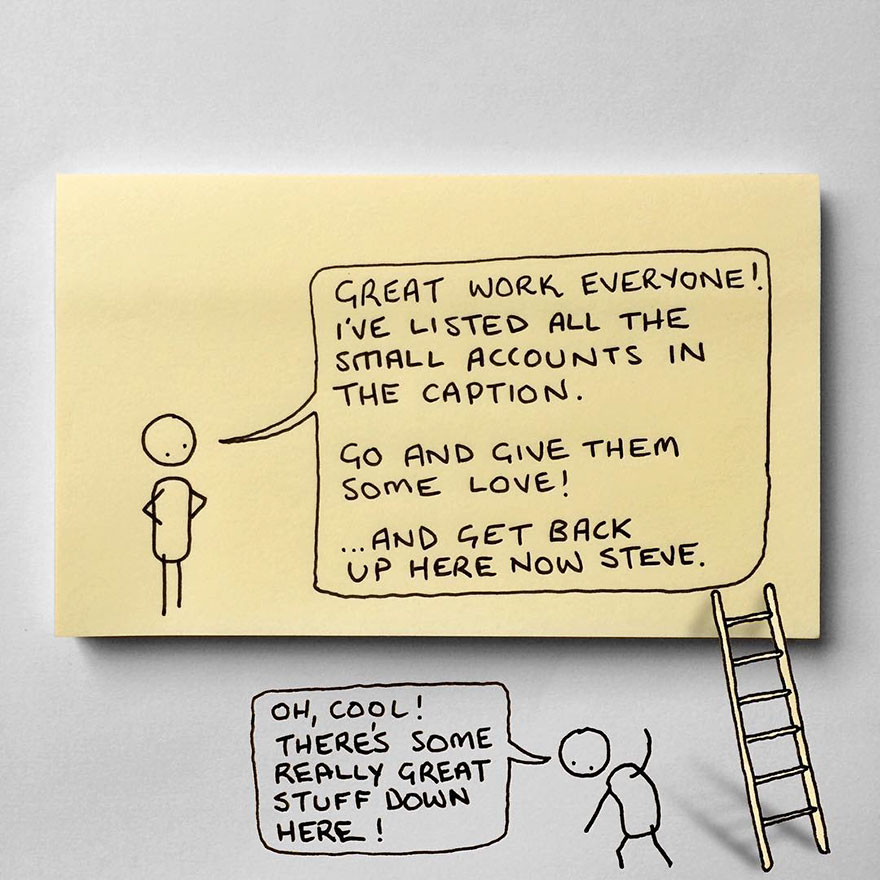 GREAT WORK EVERYONE!
I'VE LISTED ALL THE
SMALL ACCOUNTS IN
THE CAPTION.
GO AND GIVE THEM
SOME LOVE!
...AND GET BACK
UP HERE NOW STEVE.
OH, COOL!
THERE'S SOME
REALLY GREAT
STUFF DOWN
HERE!